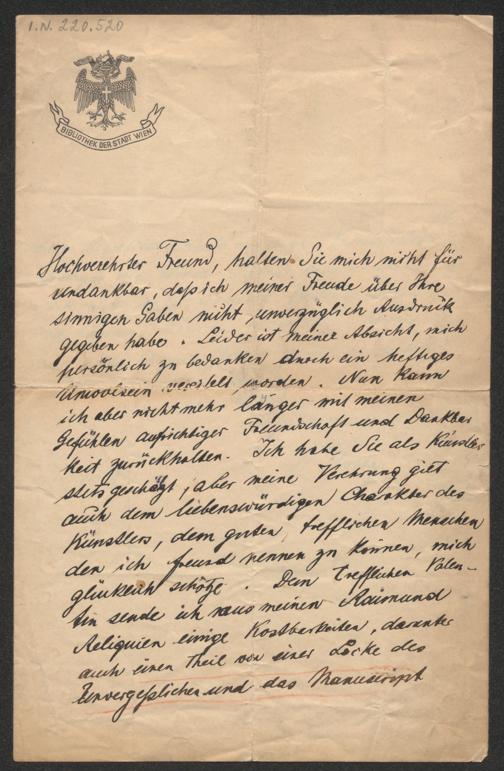 I.N. 220.520
BIBLIOTHEK DER STADT WIEN
Hochverehrter Freund, halten Sie mich nicht für
undankbar, daß ich meiner Freude über Ihre
sinnigen Gaben nicht unverzüglich Ausdruck
gegeben habe. Leider ist meine Absicht, mich
persönlich zu bedanken durch ein heftiges
Unwolsein vereitelt worden. Nun kann
ich aber nicht mehr länger mit meinen
Gefühlen aufrichtiger Freundschaft und Dankbar
keit zurückhalten. Ich habe Sie als Künstler
stets geschätzt, aber meine Verehrung gilt
auch dem liebenswürdigen Charakter des
Künstlers, dem guten, trefflichen Menschen
den ich freund nennen zu können, mich
glücklich schätze. Dem trefflichen Valen-
tin sende ich aus meinen Raimund
Reliquien einige Kostbarkeiten, darunter
auch einen Theil von einer Locke des
Unvergeßlichen und das Manuscript